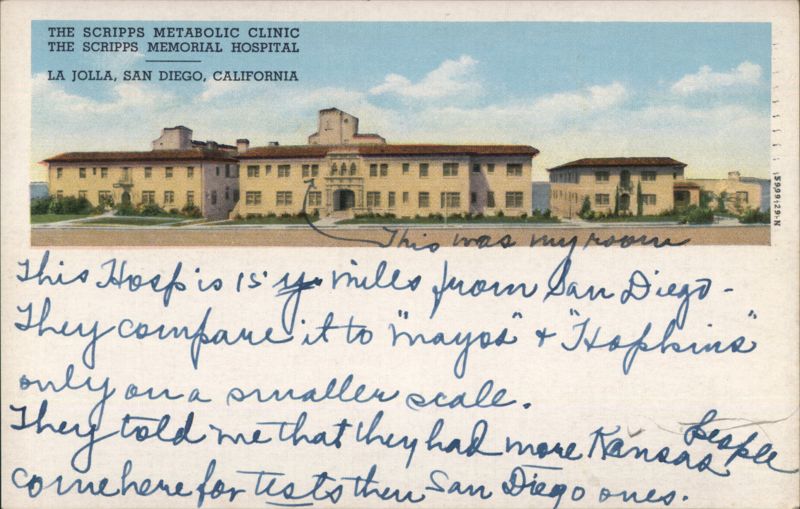 THE SCRIPPS METABOLIC CLINIC
THE SCRIPPS MEMORIAL HOSPITAL
LA JOLLA, SAN DIEGO, CALIFORNIA
5999:29-N
This was my room
This Hosp is 15 miles from San Diego -
They compare it to "mayos" + "Hopkins"
only on a smaller scale.
They told me that they had more Kansas people
come here for tests then San Diego ones.